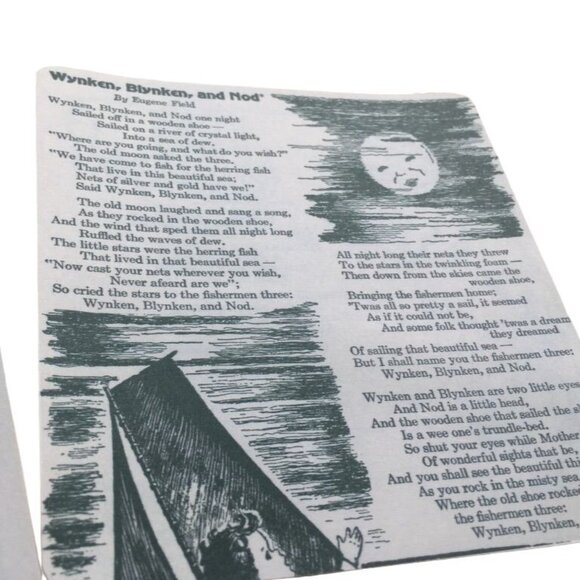 Wynken, Blynken, and Nod*
By Eugene Field
Wynken, Blynken, and Nod one night
Sailed off in a wooden shoe —
Sailed on a river of crystal light,
Into a sea of dew.
"Where are you going, and what do you wish?"
The old moon asked the three.
"We have come to fish for the herring fish
That live in this beautiful sea;
Nets of silver and gold have we!"
Said Wynken, Blynken, and Nod.
The old moon laughed and sang a song,
As they rocked in the wooden shoe,
And the wind that sped them all night long
Ruffled the waves of dew.
The little stars were the herring fish
That lived in that beautiful sea —
"Now cast your nets wherever you wish,
Never afeard are we";
So cried the stars to the fishermen three:
Wynken, Blynken, and Nod.
All night long their nets they threw
To the stars in the twinkling foam —
Then down from the skies came the
wooden shoe,
Bringing the fishermen home;
'Twas all so pretty a sail, it seemed
As if it could not be,
And some folk thought 'twas a dream
they dreamed
Of sailing that beautiful sea —
But I shall name you the fishermen three:
Wynken, Blynken, and Nod.
Wynken and Blynken are two little eyes
And Nod is a little head,
And the wooden shoe that sailed the
Is a wee one's trundle-bed.
So shut your eyes while Mother
Of wonderful sights that be,
And you shall see the beautiful
As you rock in the misty sea
Where the old shoe rocked
the fishermen three:
Wynken, Blynken,